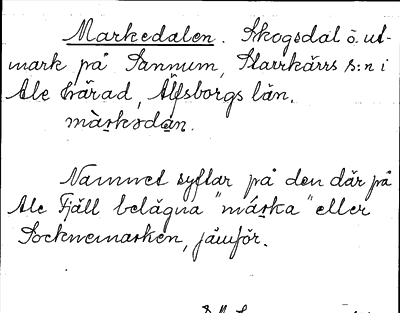 Markedalen. Skogsdal ö. ut-
mark på Sannum, Starrkärrs s:n i
Ale härad, Älfsborgs län.
màrksdàn.
Namnet syftar på den där på
Ale Fjäll belägna "márka" eller
Socknemarken, jämför.